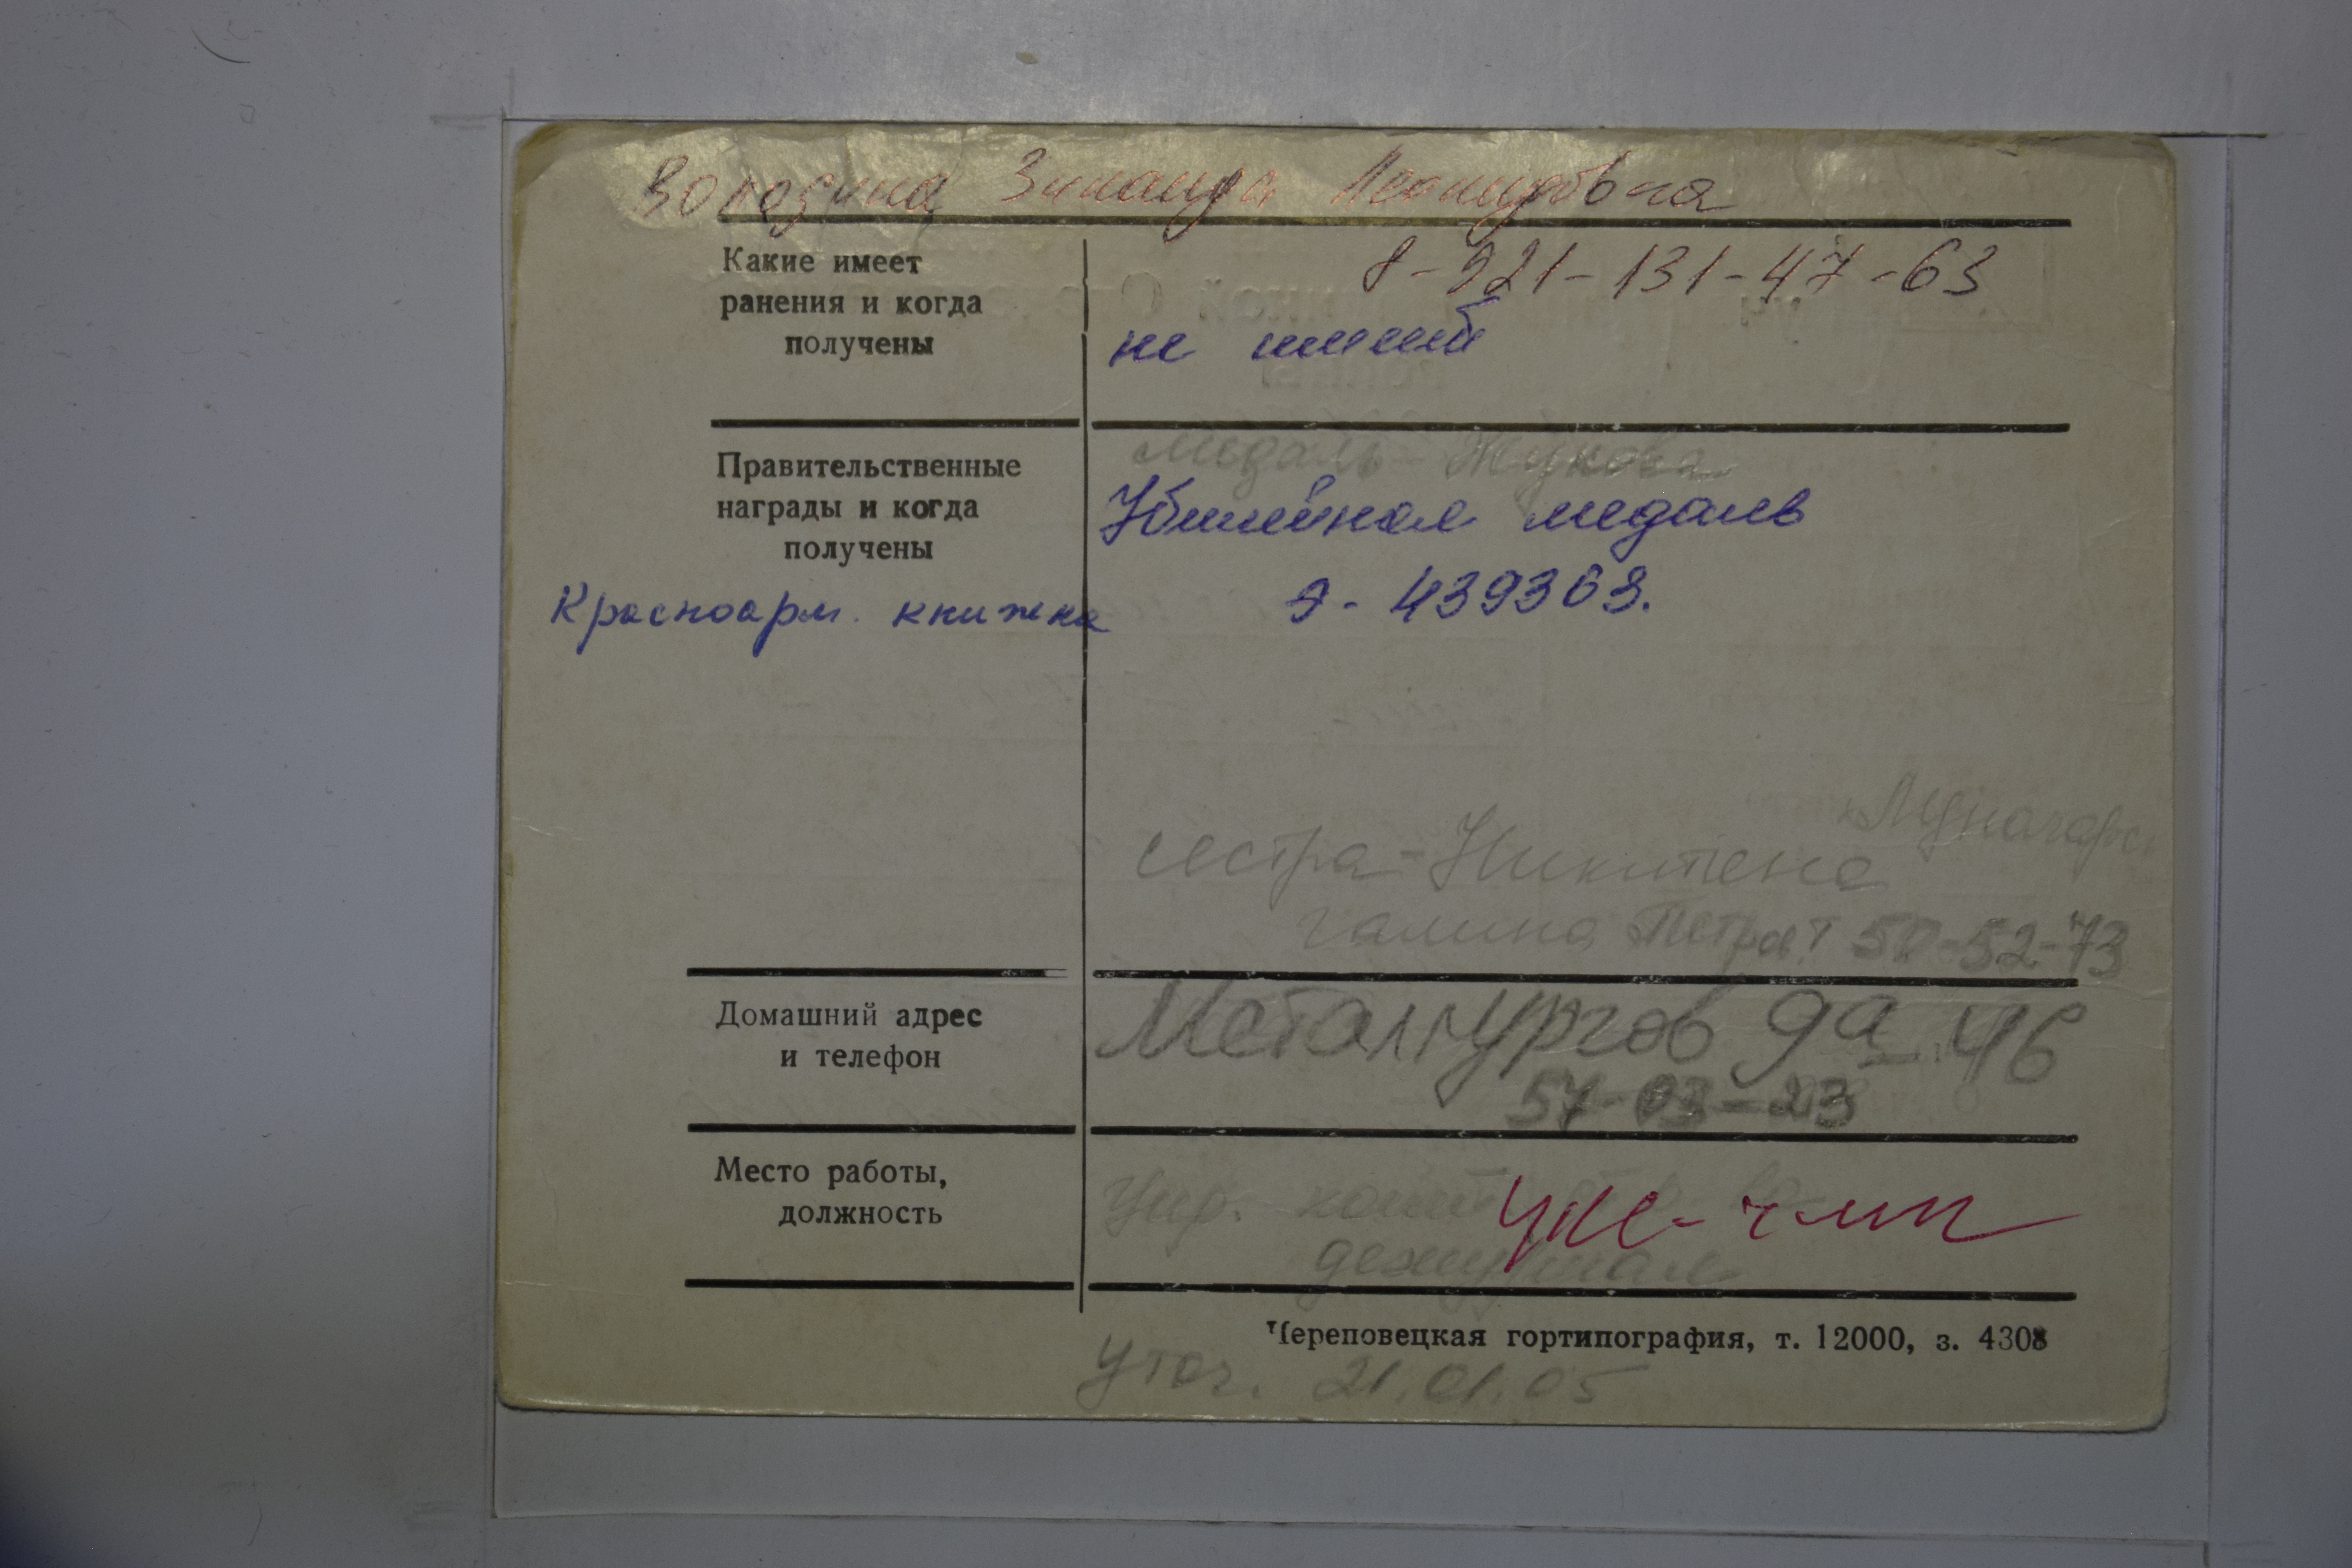 Володина Зинаида Леонидовна
Какие имеет
ранения и когда
получены
8-921-131-47-63
не имеет
Правительственные
награды и когда
получены
медаль Жукова
Юбилейная медаль
Красноарм. книжка
Э - 439363.
Луначарс
сестра - Никитена
галина Петров. т 50-52-73
Домашний адрес
и телефон
Металлургов 9а-46
57-03-23
Место работы,
должность
Упр.
УКС - ЧМК
дежурная
Череповецкая гортипография, т. 12000, з. 4308
Уточ. 21.01.05